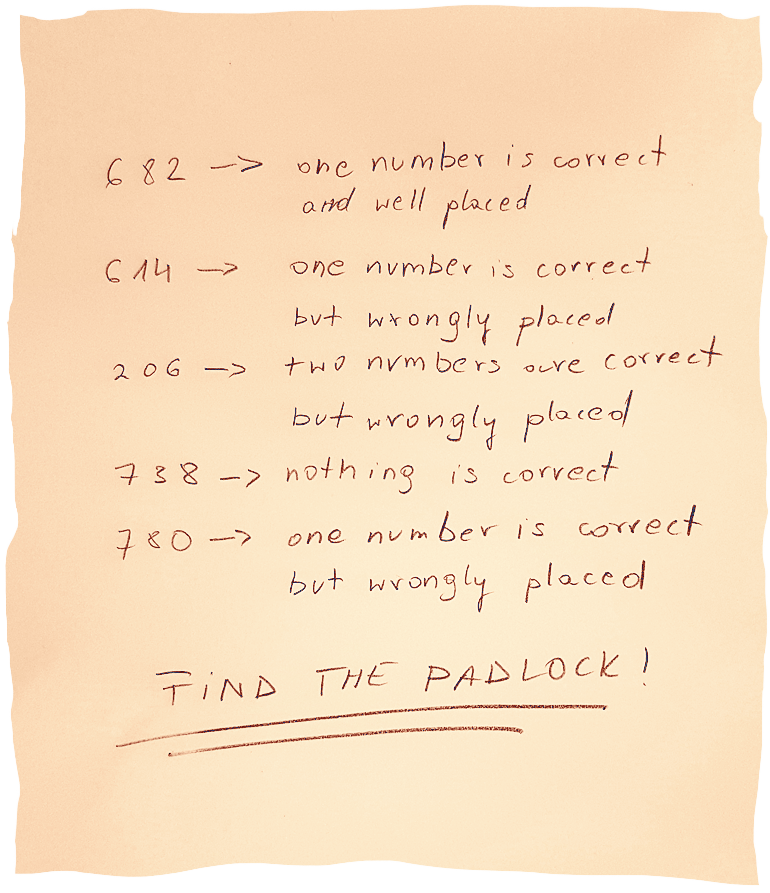 682 -> one number is correct
and well placed
614 -> one number is correct
but wrongly placed
206 -> two numbers are correct
but wrongly placed
738 -> nothing is correct
780 -> one number is correct
but wrongly placed
FiND THE PADLOCK!